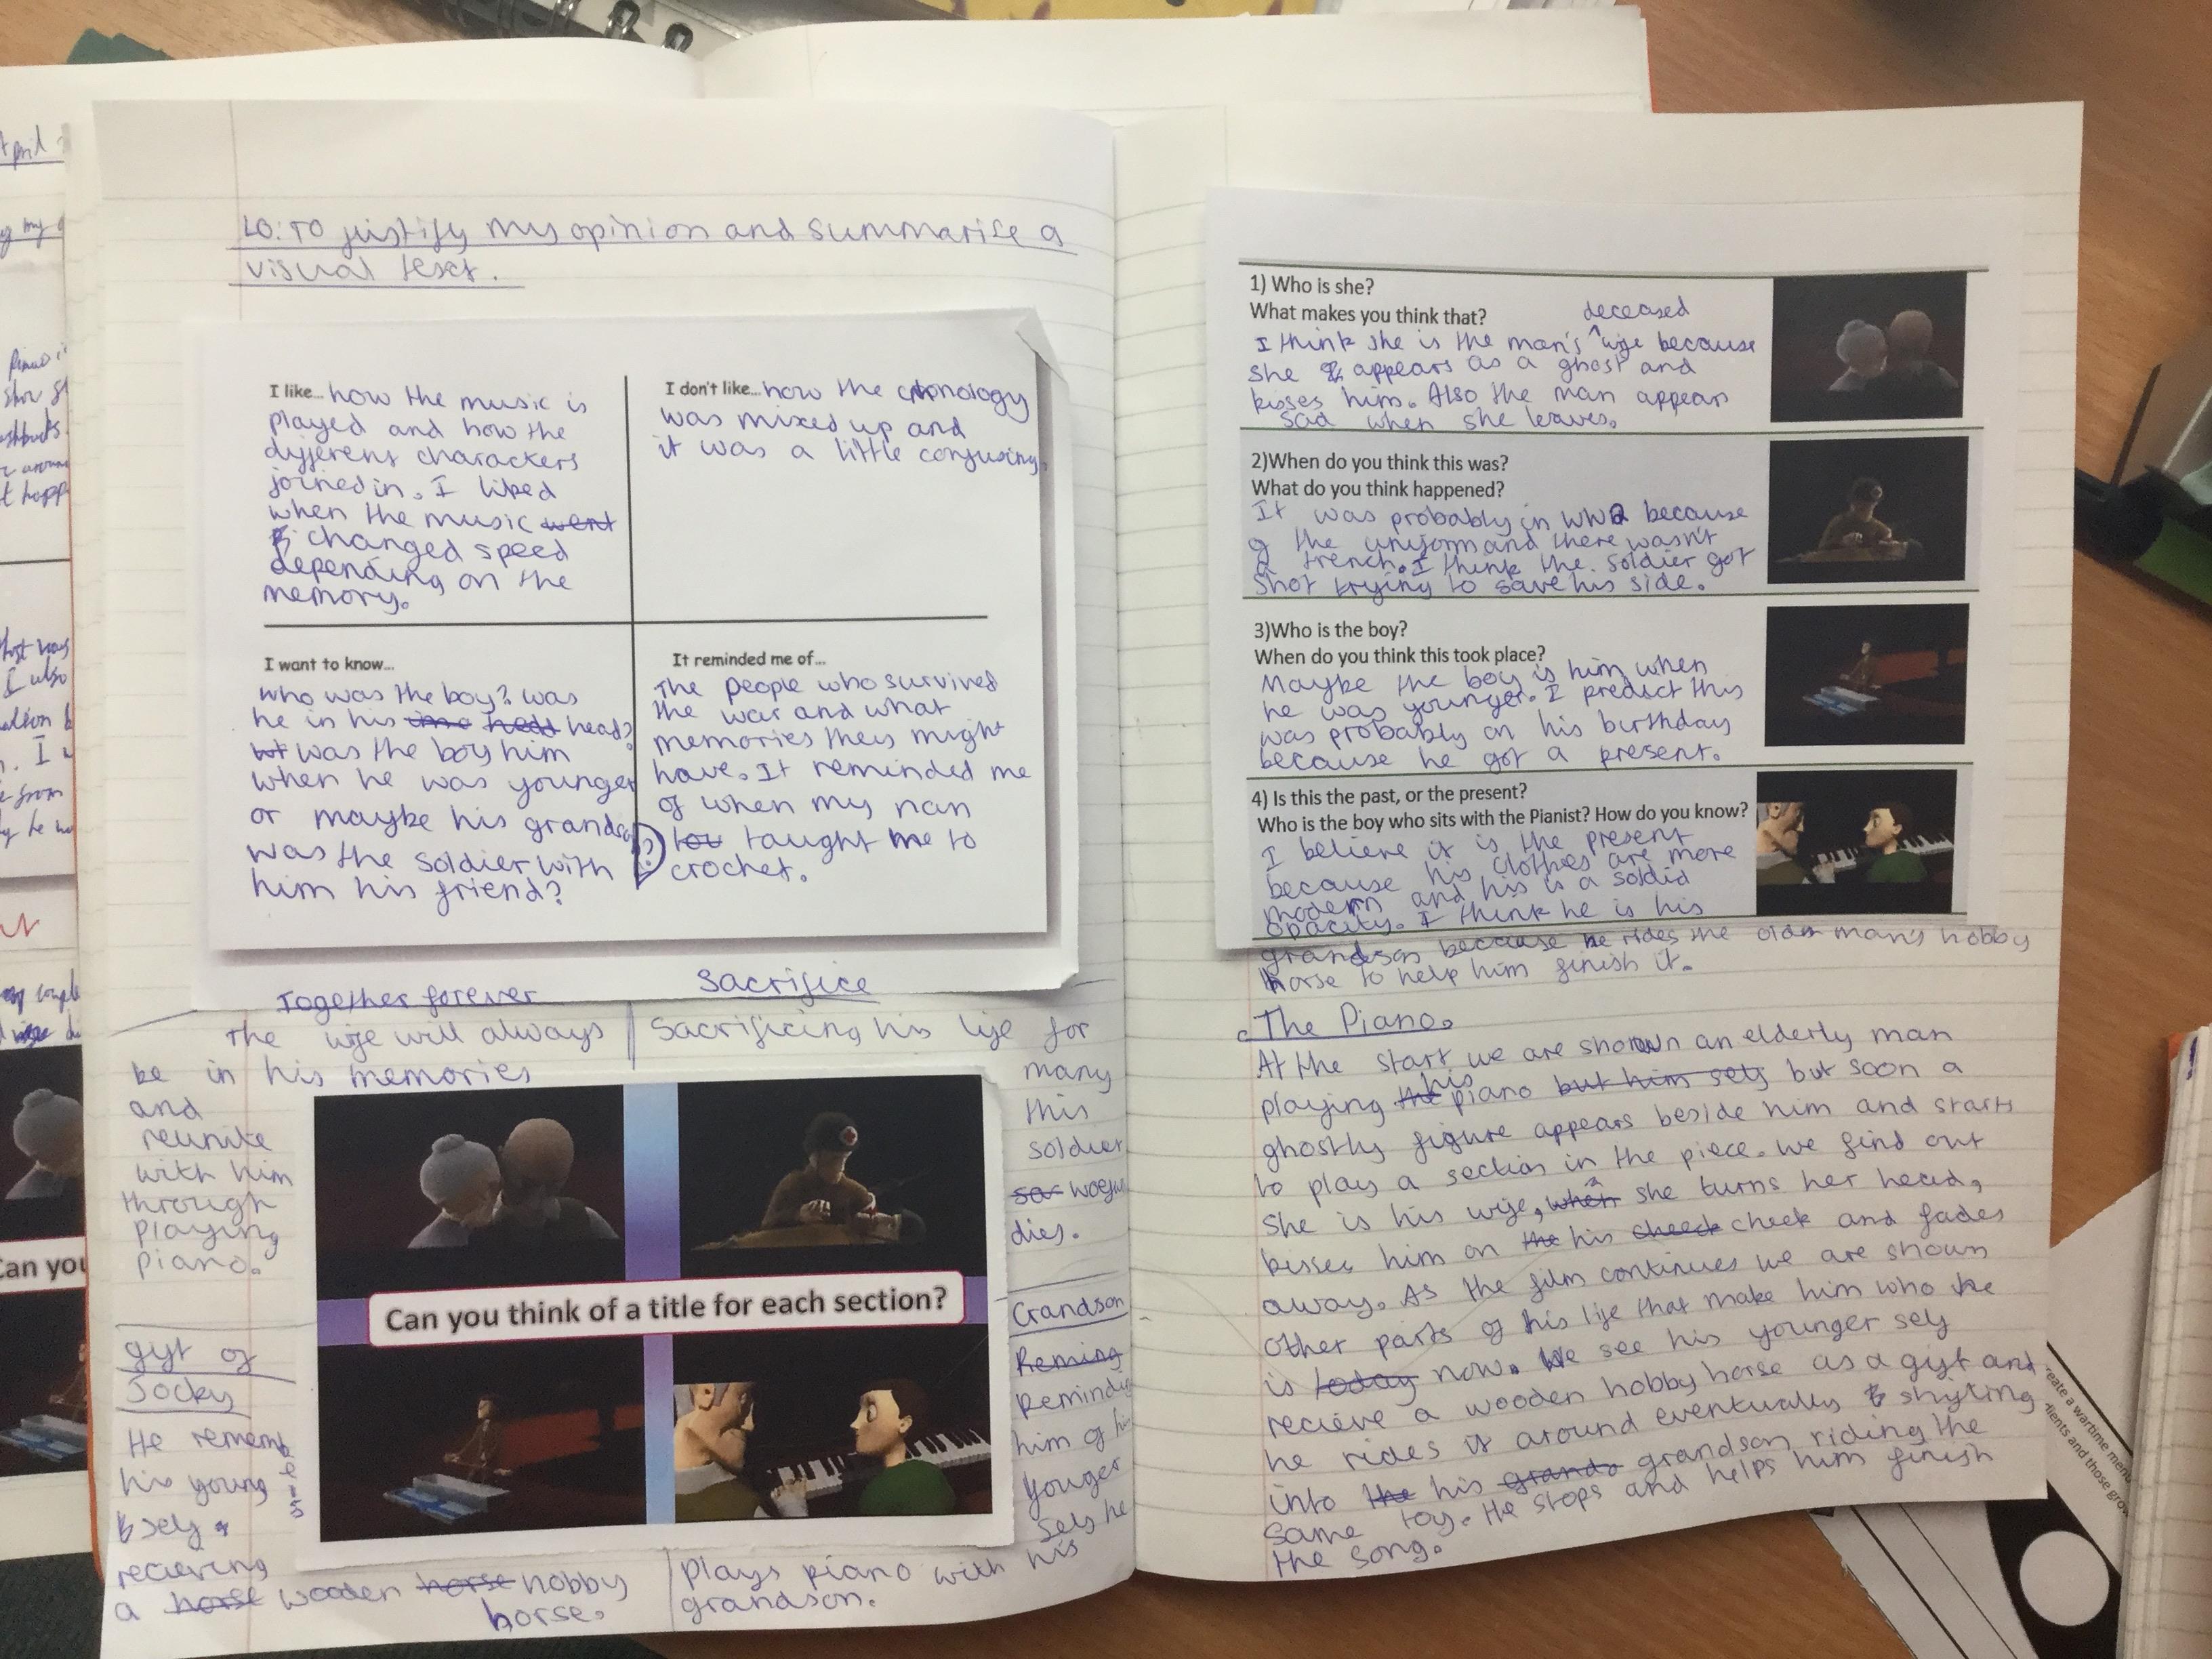 LO: To justify my opinion and summarise a
visual text.
I like... how the music is
played and how the
different charackers
joined in. I liked
when the music went
changed speed
depending on the
memory.
I don't like... how the chronology
was mixed up and
it was a little confusing.
I want to know...
who was the boy? was
he in his head?
was the boy him
when he was younger
or maybe his grandson?
was the soldier with
him his friend?
It reminded me of...
The people who survived
the war and what
memories they might
have. It reminded me
of when my nan
taught me to
crochet.
Together forever
The wife will always
be in his memories
and
reunite
with him
through
playing
piano.
Sacrifice
Sacrificing his life for
many
this
soldier
dies.
Can you think of a title for each section?
gift of
Jocky
He remembers
his young
self
recieving
a horse wooden horse hobby
horse.
Grandson
Reming
Reminding
him of his
youger
self he
plays piano with his
grandson.
1) Who is she?
What makes you think that?
deceased
I think she is the man's ^ wife because
she appears as a ghost and
kisses him. Also the man appears
sad when she leaves.
2)When do you think this was?
What do you think happened?
It was probably in WW2 because
of the uniform and there wasn't
a trench. I think the soldier got
shot trying to save his side.
3)Who is the boy?
When do you think this took place?
Maybe the boy is him when
he was younger. I predict this
was probably on his birthday
because he got a present.
4) Is this the past, or the present?
Who is the boy who sits with the Pianist? How do you know?
I believe it is the present
because his clothes are more
modern and his is a solid
opacity. I think he is his
grandson because he rides the old man's hobby
horse to help him finish it.
The Piano.
At the start we are shown an elderly man
playing the his piano but him sets but soon a
ghostly figure appears beside him and starts
to play a section in the piece. we find out
she is his wife, when she turns her head,
kisses him on the his cheeck cheek and fades
away. As the film continues we are shown
other parts of his life that make him who he
is today now. We see his younger self
recieve a wooden hobby horse as a gift and
he rides it around eventually shifting
into the his grando grandson riding the
same toy. He stops and helps him finish
the song.
Can you